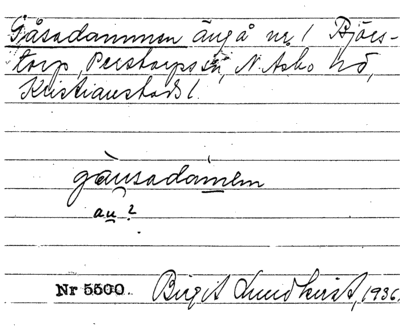 Gåsadammen äng å nr 1 Björs-
torp, Perstorps sn, N. Åsbo hd,
Kristianstads l.
gäusadamen
au?
Nr 5500. Birgit Lundkvist, 1936.